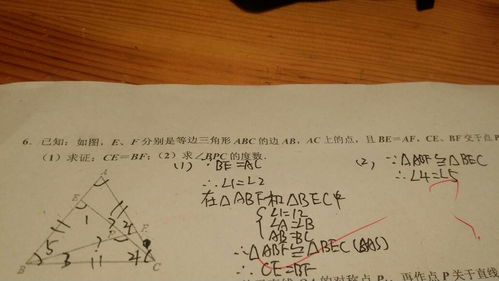 6. 已知：如图，E、F 分别是等边三角形 ABC 的边 AB，AC 上的点，且 BE=AF，CE、BF 交于点 P
(1) 求证：CE=BF；(2) 求∠BPC 的度数．
(1) ∵BE=AC
∴∠1=∠2
在△ABF和△BEC中
∠1=12
∠A=∠B
AB=BC
∴△ABF≌△BEC(AAS)
∴CE=BF
(2) ∵△ABF≌△BEC
∴∠4=∠5
A
E
F
1
2
5
3
11
4
6
B
C
的对称点 P
，再作点 P 关于直线